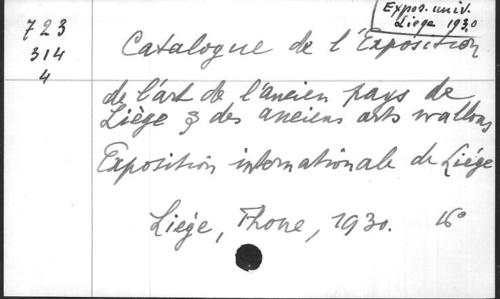 Expos. univ.
Liege 1930
723
314
4
Catalogue de l'Exposition
de l'art de l'ancien pays de
Liège & des anciens arts wallons
Exposition internationale de Liége
Liége, Thone, 1930. 16°